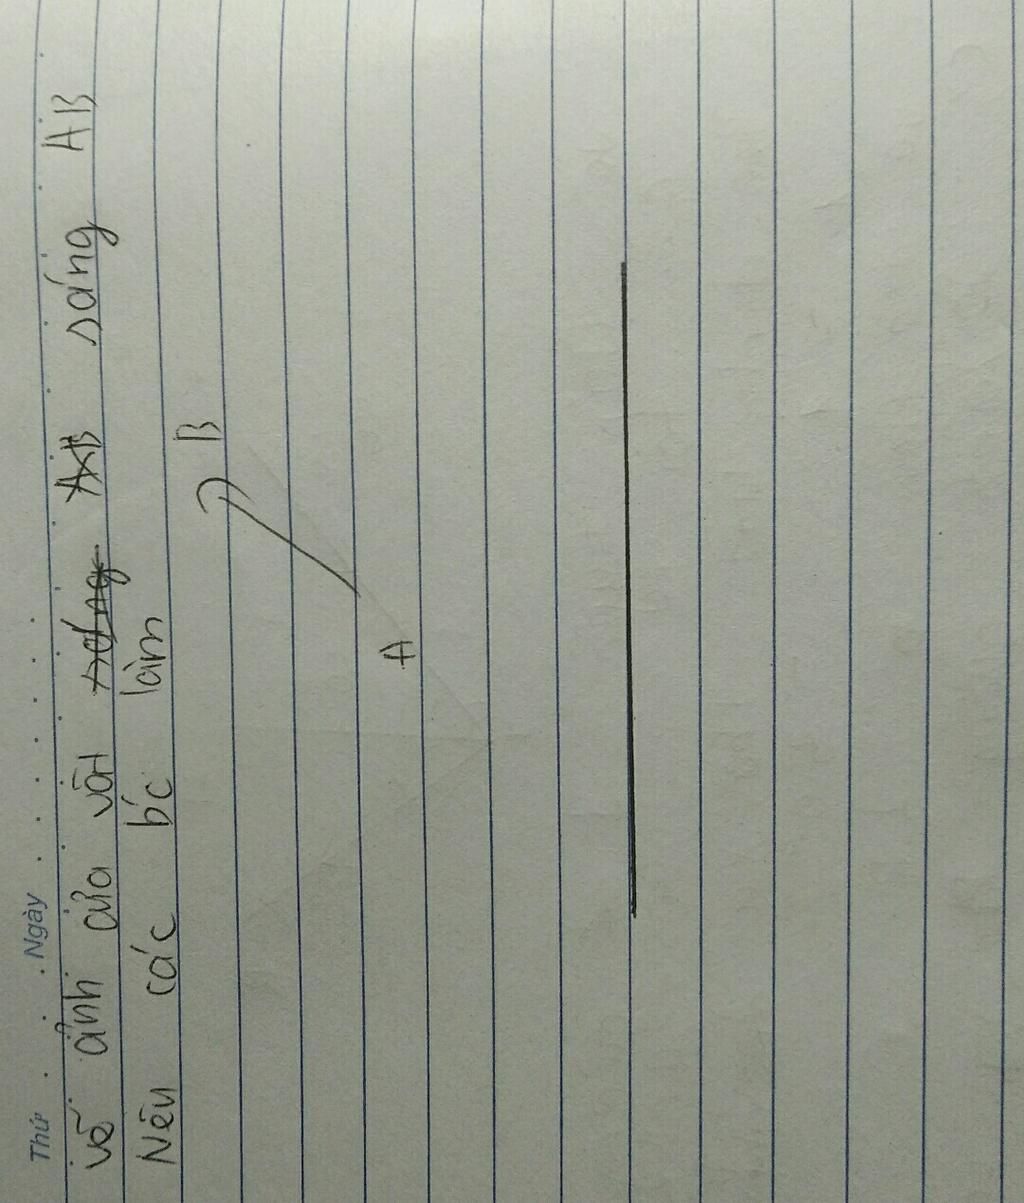 Thứ Ngày
vẽ ảnh của vật sáng AB sáng AB
Nêu các bc làm
B
A